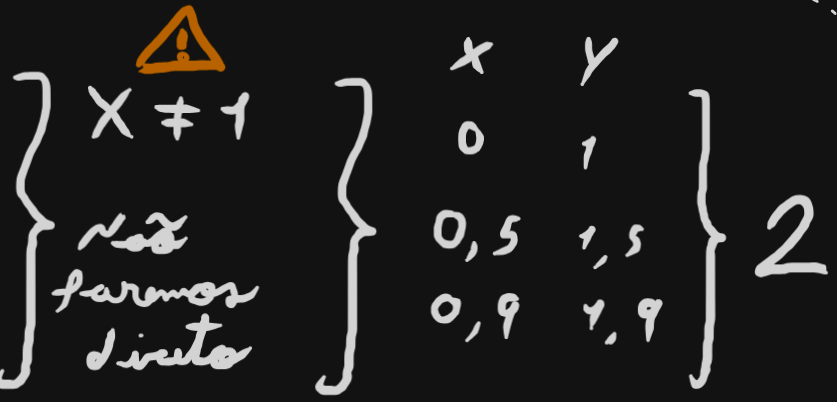 !
X ≠ 1
Não
faremos
direto
x y
0 1
0,5 1,5
0,9 1,9
2